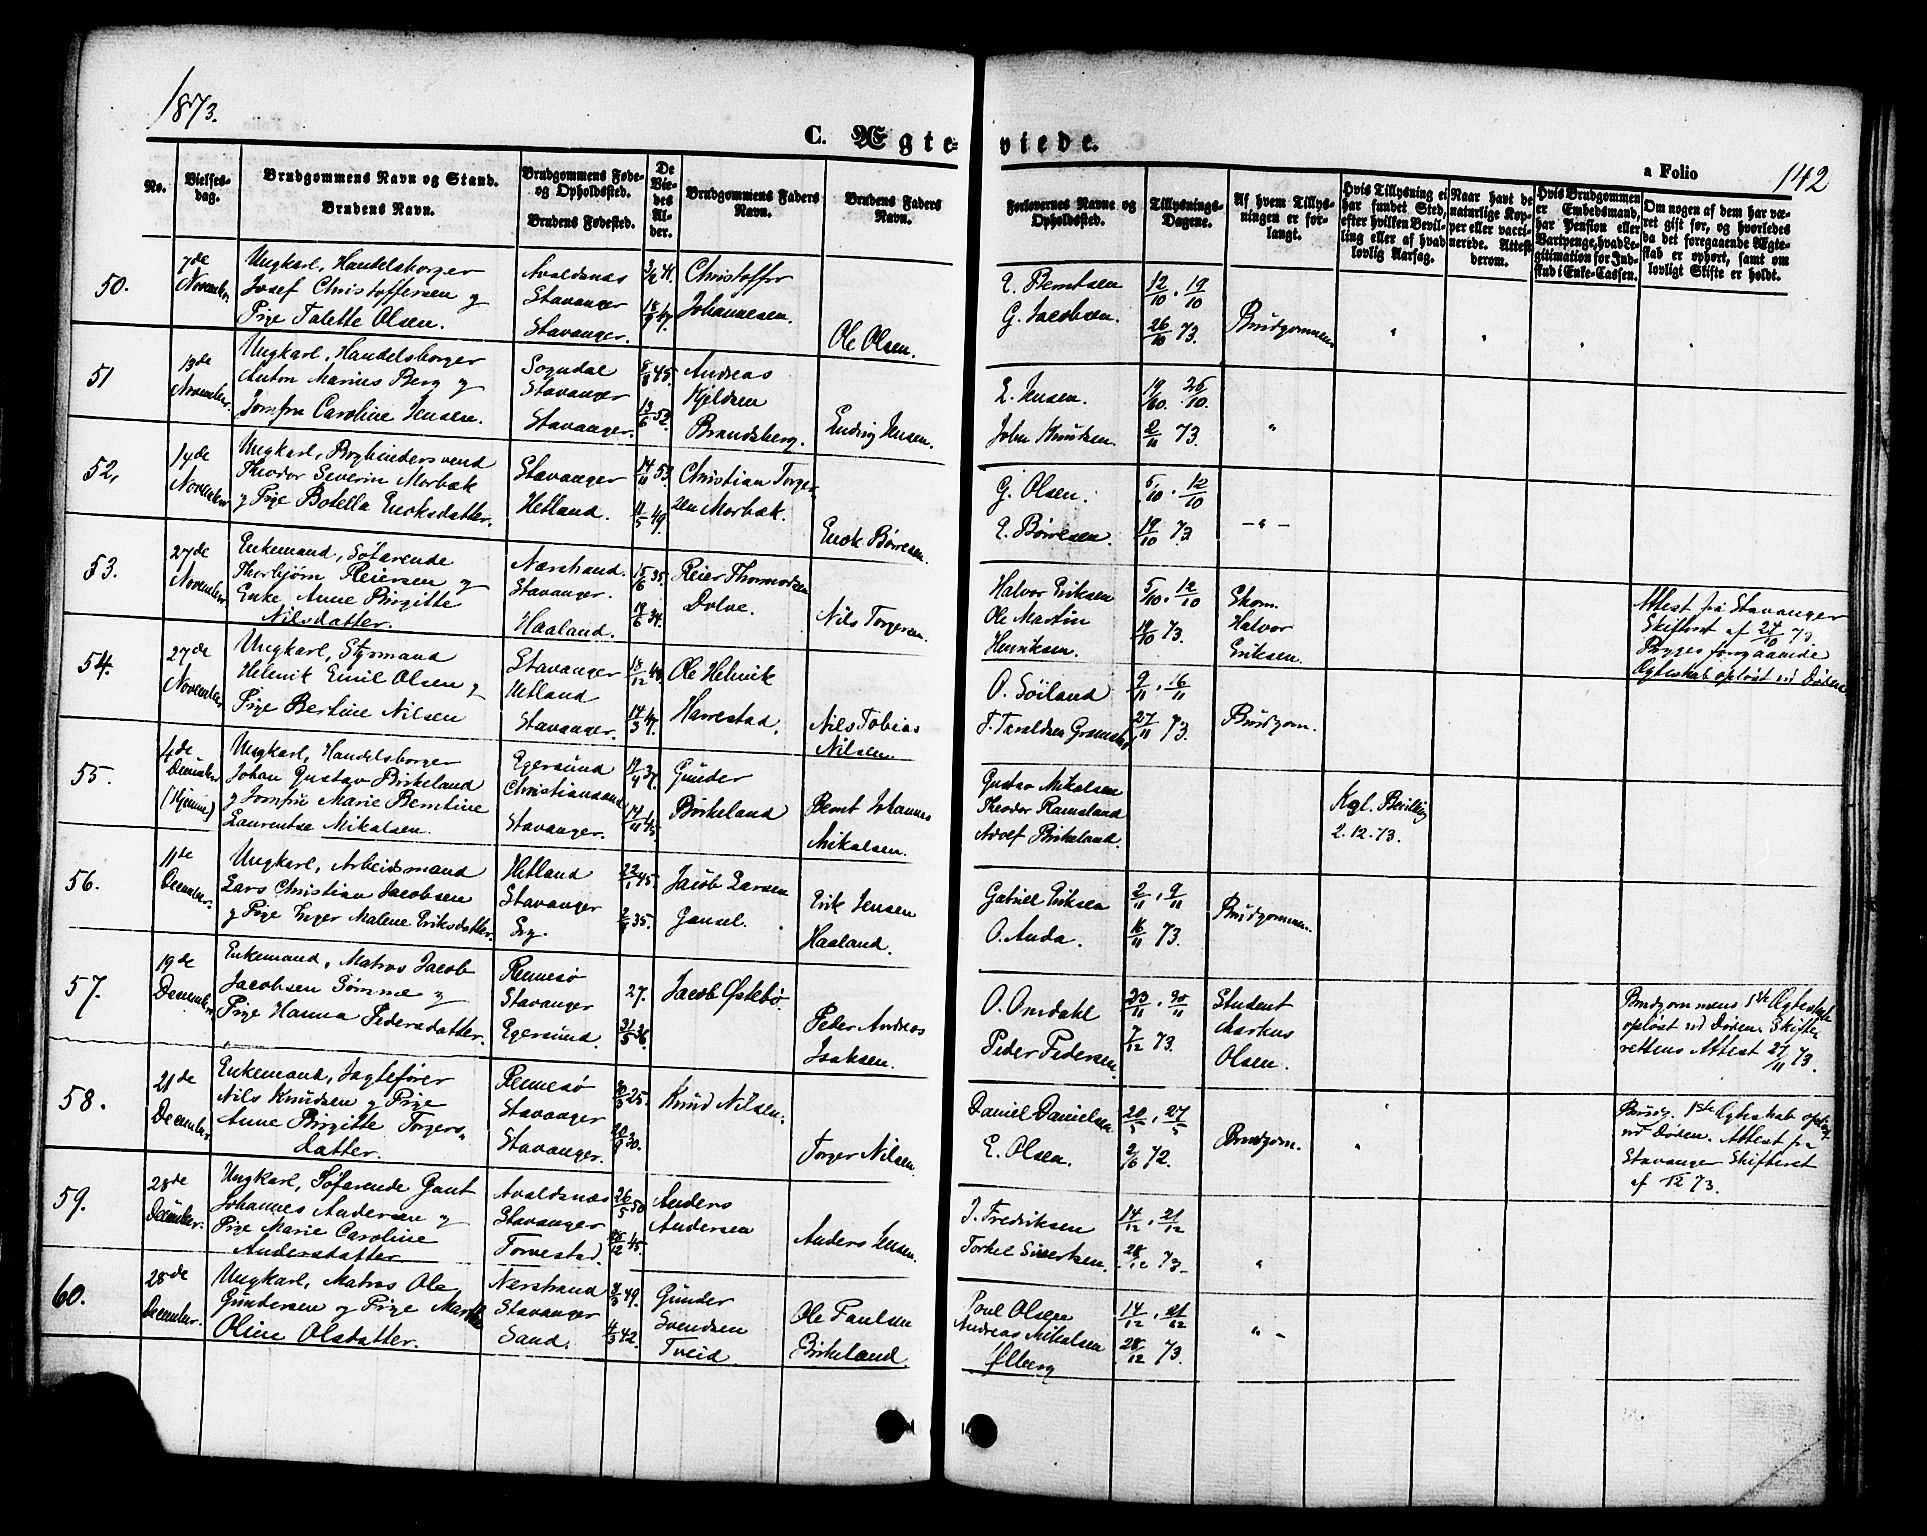 1873.
C. Ægte-
viede.
a Folio
142
No.
Vielses-
dag.
Brudgommens Navn og Stand.
Brudens Navn.
Brudgommens Føde-
og Opholdssted.
Brudens Fødested.
De
Vie-
des
Al-
der.
Brudgommens Faders
Navn.
Brudens Faders
Navn.
Forlovernes Navne og
Opholdssted.
Tillysnings-
Dagene.
Af hvem Tillys-
ningen er for-
langt.
Hvis Tillysning ei
har fundet Sted,
efter hvilken Bevil-
ling eller af hvad
lovlig Aarsag.
Naar havt de
naturlige Kop-
per eller vacci-
nerede. Attest
derom.
Hvis Brudgommen
er Embedsmand,
har Pension eller
Vartpenge, hvad Le-
gitimation for Ind-
skud i Enke-Cassen.
Om nogen af dem har væ-
ret gift før, og hvorledes
da det foregaaende Ægte-
skab er ophørt, samt om
lovligt Skifte er holdt.
50.
7de
November.
Ungkarl, Handelsborger
Josef Christoffersen og
Pige Talette Olsen.
Avaldsnæs
Stavanger
Stavanger.
18/9 47.
Christoffer
Johannesen.
Ole Olsen.
E. Berntsen
G. Jacobsen.
12/10. 19/10
26/10 73.
Brudgommen
51
13de
November.
Ungkarl, Handelsborger
Anton Marius Berg og
Jomfru Caroline Jensen.
Sogndal
Stavanger
Stavanger.
8/8 45.
13/6 52.
Andreas
Kjeldsen
Brandsberg.
Ludvig Jensen.
L. Jensen.
John Knudsen.
19/10. 26/10.
2/11 73.
"
52.
14de
November
Ungkarl, Bogbindersvend
Theodor Severin Morbæk
og Pige Botella Enoksdatter.
Stavanger
Hetland.
14/11 53.
11/5 49.
Christian Torger-
sen Morbæk.
Enok Børresen.
G. Olsen.
E. Børresen.
5/10. 12/10
19/10 73.
- " -
53.
27de
November
Enkemand, Søfarende
Thorbjørn Reiersen og
Enke Anne Birgitte
Nilsdatter.
Nærstrand.
Stavanger.
Haaland.
15/6 35.
Reier Thormodsen
Dolve.
Nils Torgersen.
Halvor Eriksen
Ole Martin
Henriksen.
5/10. 12/10
19/10 73.
Skom.
Halvor
Eriksen.
Attest fra Stavanger
Skifteret af 24/10 73.
Begges foregaaende
Ægteskab opløst ved Døden
54.
27de
November
Ungkarl, Styrmand
Helmik Emil Olsen og
Pige Bertine Nilsen
Stavanger
Hetland
Stavanger.
18/12 49.
14/3 47.
Ole Helmik
Harrestad.
Nils Tobias
Nilsen.
O. Söiland
T. Taraldsen Gramstad
9/11. 16/11
27/11 73.
Brudgom.
55.
4de
December
(Hjemme)
Ungkarl, Handelsborger
Johan Gustav Birkeland
og Jomfru Marie Berntine
Laurentse Mikalsen.
Egersund
Christiansand
Stavanger.
Gunder
Birkeland
Bernt Johannes
Mikalsen.
Gustav Mikalsen
Theodor Ramsland
Adolf Birkeland.
Kgl. Bevilling
2.12.73.
56.
11de
December.
Ungkarl, Arbeidsmand
Lars Christian Jacobsen
og Pige Inger Malene Eriksdatter.
Hetland
Stavanger
22/1 45.
Jacob Larsen
Gausel.
Erik Jensen
Haaland.
Gabriel Eriksen
O. Anda.
2/11. 9/11
16/11 73.
Brudgommen.
57.
19de
December
Enkemand, Matros Jacob
Jacobsen Sømme og
Pige Hanna Pedersdatter.
Rennesø
Stavanger
Egersund.
27.
31/5 36.
Jacob Østebø.
Peder Andreas
Isaksen.
O. Omdahl
Peder Pedersen.
23/11. 30/11
7/12 73.
Student
Markus
Olsen.
Brudgommens 1ste Ægteskab
opløst ved Døden. Skifte-
rettens Attest 27/11 73.
58.
21de
December
Enkemand, Jagtefører
Nils Knudsen og Pige
Anne Birgitte Torgers-
datter.
Rennesø
Stavanger
Stavanger.
20/9 30.
Knud Nilsen.
Torger Nilsen.
Daniel Danielsen
E. Olsen.
20/5. 27/5
2/6 72.
Brudgom.
"
Brudg. 1ste Ægteskab opløst
ved Døden. Attest fra
Stavanger Skifteret
59.
28de
December.
Ungkarl, Søfarende Gaut
Johannes Andersen og
Pige Marie Caroline
Andersdatter
Avaldsnæs
Stavanger
Torvestad
26/5 50
Anders
Andersen
Anders Jensen.
J. Fredriksen
Torkel Sivertsen.
14/12. 21/12
28/12 73.
"
60.
28de
December.
Ungkarl, Matros Ole
Gundersen og Pige Martha
Oline Olsdatter.
Nærstrand
Stavanger
Sand.
4/3 42.
Gunder
Svendsen
Tveid.
Ole Paulsen
Birkeland.
Poul Olsen
Andreas Mikalsen
Ølberg
14/12. 21/12
28/12 73.
" -